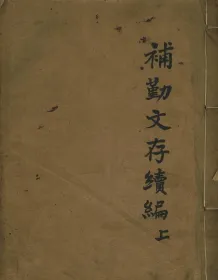 補勤文存續編上